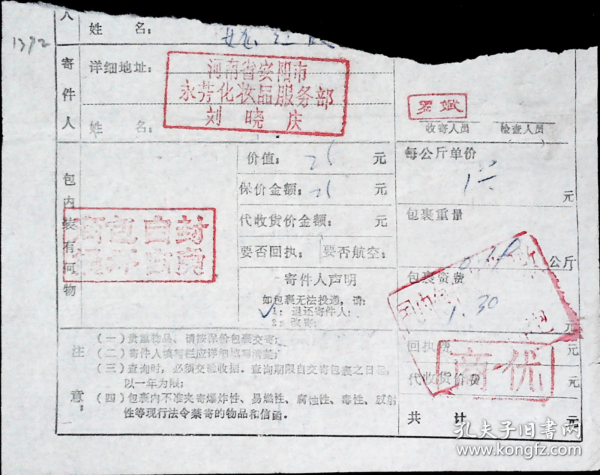 1392
人 姓 名：
寄件人 详细地址：
河南省安阳市
永芳化妆品服务部
刘晓庆
姓 名：
罗斌
收寄人员 检查人员
包内装有何物
价值： 元
保价金额： 元
代收货价金额： 元
要否回执： 要否航空：
寄件人声明
如包裹无法投递，请：
1：退还寄件人：
2：改寄：
每公斤单价
元
包裹重量
公斤
包裹资费
1.30
回执费
商优
代收货价费
共 计 元
注意：
（一）贵重物品、请按保价包裹交寄；
（二）寄件人填写栏应详细填写清楚；
（三）查询时，必须交验收据，查询期限自交寄包裹之日起，
以一年为限；
（四）包裹内不准夹寄爆炸性、易燃性、腐蚀性、毒性、放射
性等现行法令禁寄的物品和信函。
孔夫子旧书网